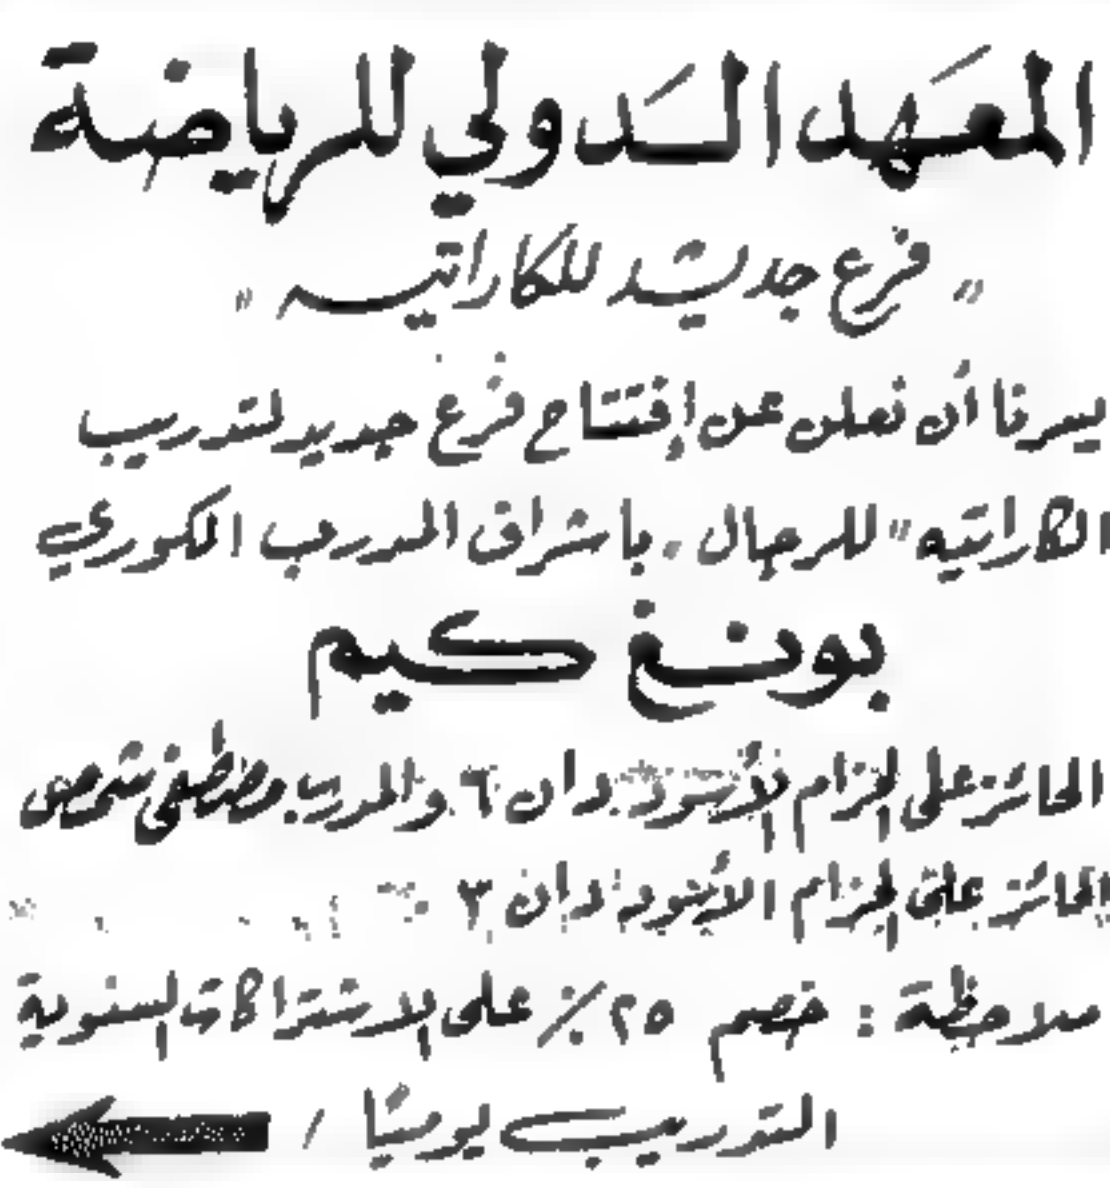 المعهد الدولي للرياضة
" فرع جديد للكاراتيه "
يسرنا أن نعلن عن إفتتاح فرع جديد لتدريب
الكاراتيه " للرجال " باشراف المدرب الكوري
بونغ كيم
الحائز على الحزام الأسود دان ٦ والمدرب مصطفى شمص
الحائز على الحزام الأسود دان ٣
ملاحظة : خصم ٢٥ ٪ على الاشتراكات السنوية
التدريب يوميًا /